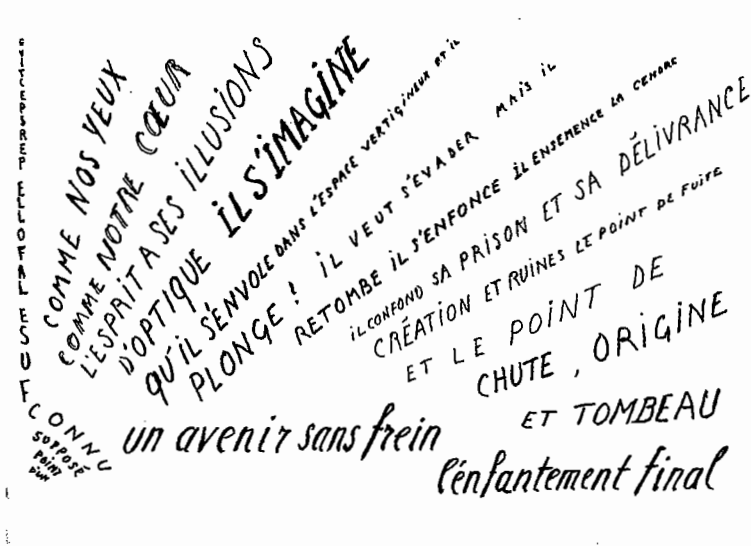 D'UN
POINT
SUPPOSÉ
CONNU
FUSE LA FOLLE PERSPECTIVE
COMME NOS YEUX
COMME NOTRE CŒUR
L'ESPRIT A SES ILLUSIONS
D'OPTIQUE IL S'IMAGINE
QU'IL S'ENVOLE DANS L'ESPACE VERTIGINEUX ET IL
PLONGE ! IL VEUT S'EVADER MAIS IL
RETOMBE IL S'ENFONCE IL ENSEMENCE LA CENDRE
IL CONFOND SA PRISON ET SA DÉLIVRANCE
CRÉATION ET RUINES LE POINT DE FUITE
ET LE POINT DE
CHUTE, ORIGINE
ET TOMBEAU
un avenir sans frein
l'enfantement final